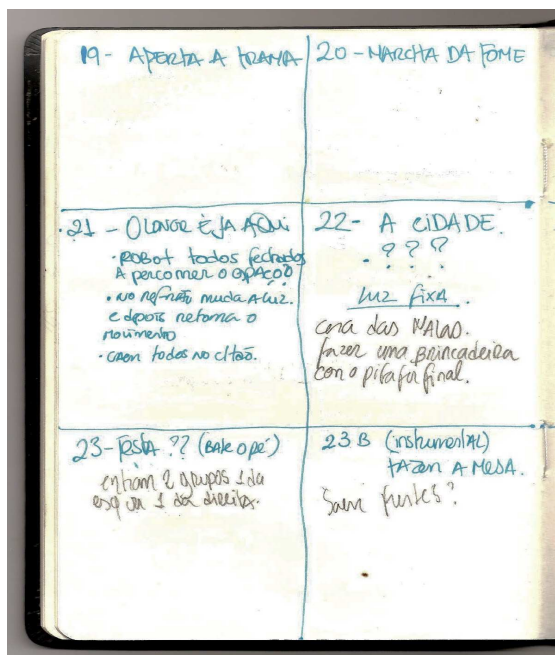 19 - APERTA A TRAMA
20 - MARCHA DA FOME
21 - O LONGE É JÁ AQUI
• ROBOT todos fechados
A percorrer o espaço
• no refrão muda a luz.
e depois retoma o
movimento
• caem todos no chão.
22 - A CIDADE.
• ? ? ?
luz fixa.
cena das malas.
fazer uma brincadeira
com o final.
23 - FESTA ?? (BATE O PÉ)
entram 2 grupos 1 da
esq 1 da direita.
23 B (instrumental)
FAZEM A MESA.
Saem ?